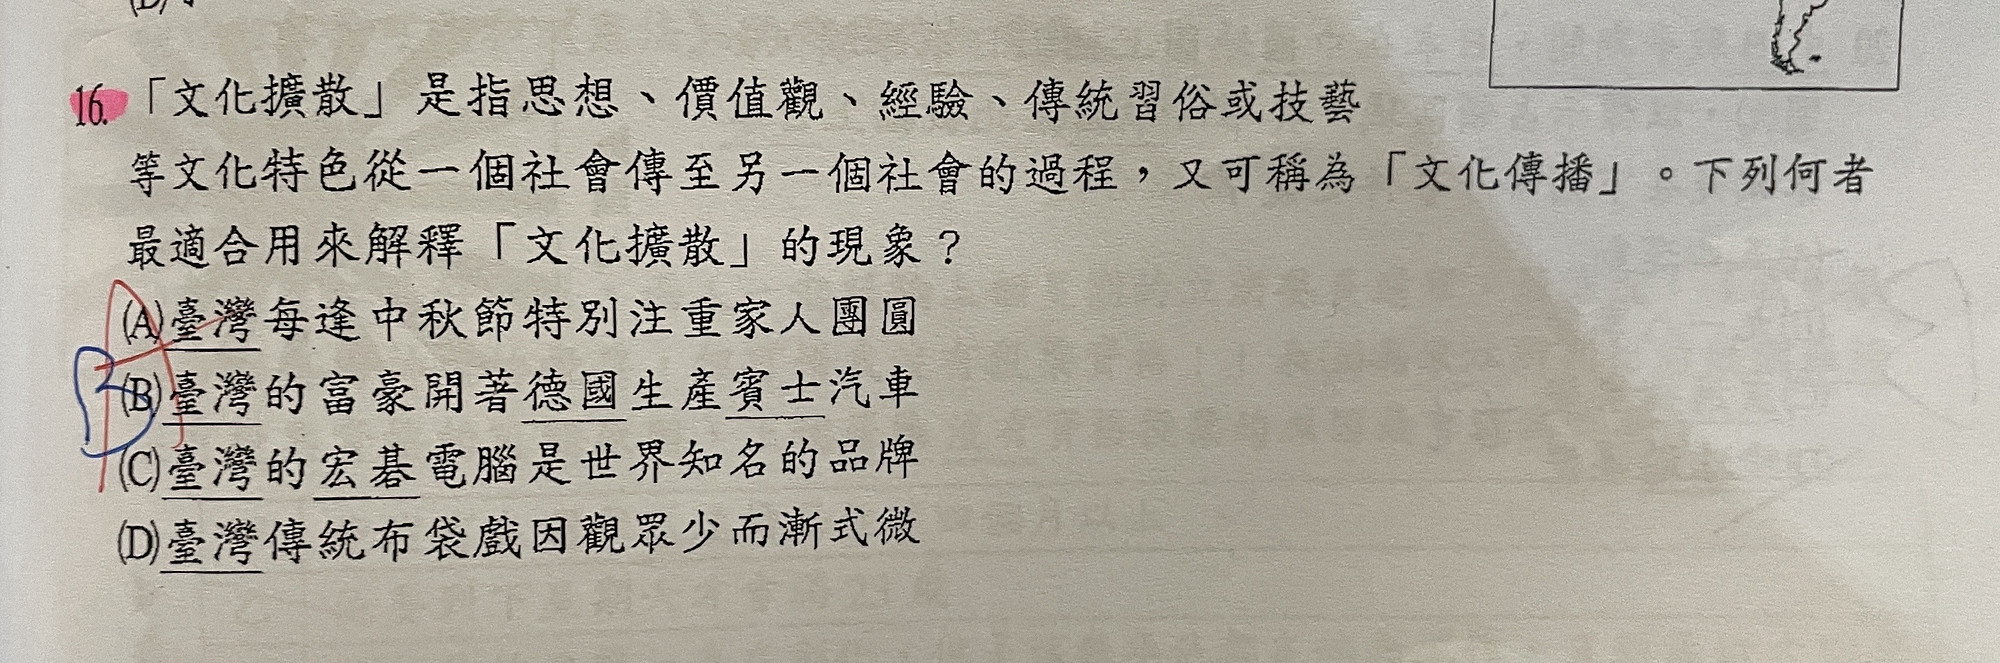 16.「文化擴散」是指思想、價值觀、經驗、傳統習俗或技藝
等文化特色從一個社會傳至另一個社會的過程，又可稱為「文化傳播」。下列何者
最適合用來解釋「文化擴散」的現象？
(A)臺灣每逢中秋節特別注重家人團圓
(B)臺灣的富豪開著德國生產賓士汽車
(C)臺灣的宏碁電腦是世界知名的品牌
(D)臺灣傳統布袋戲因觀眾少而漸式微
A
B